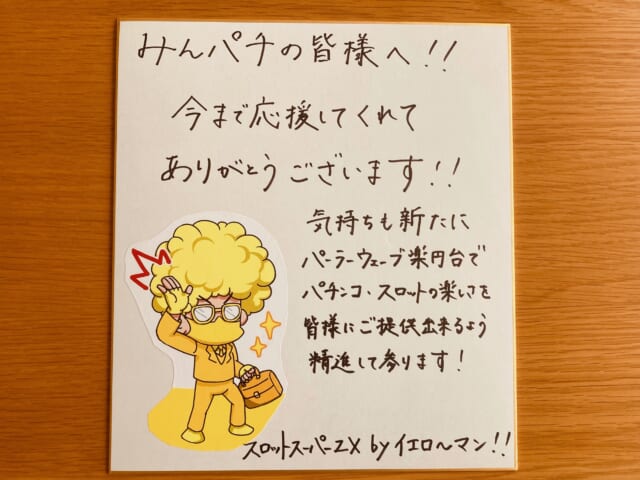 みんパチの皆様へ!!
今まで応援してくれて
ありがとうございます!!
気持ちも新たに
パーラーウェーブ楽円台で
パチンコ、スロットの楽しさを
皆様にご提供出来るよう
精進して参ります!
スロットスーパーZX by イエロ〜マン!!